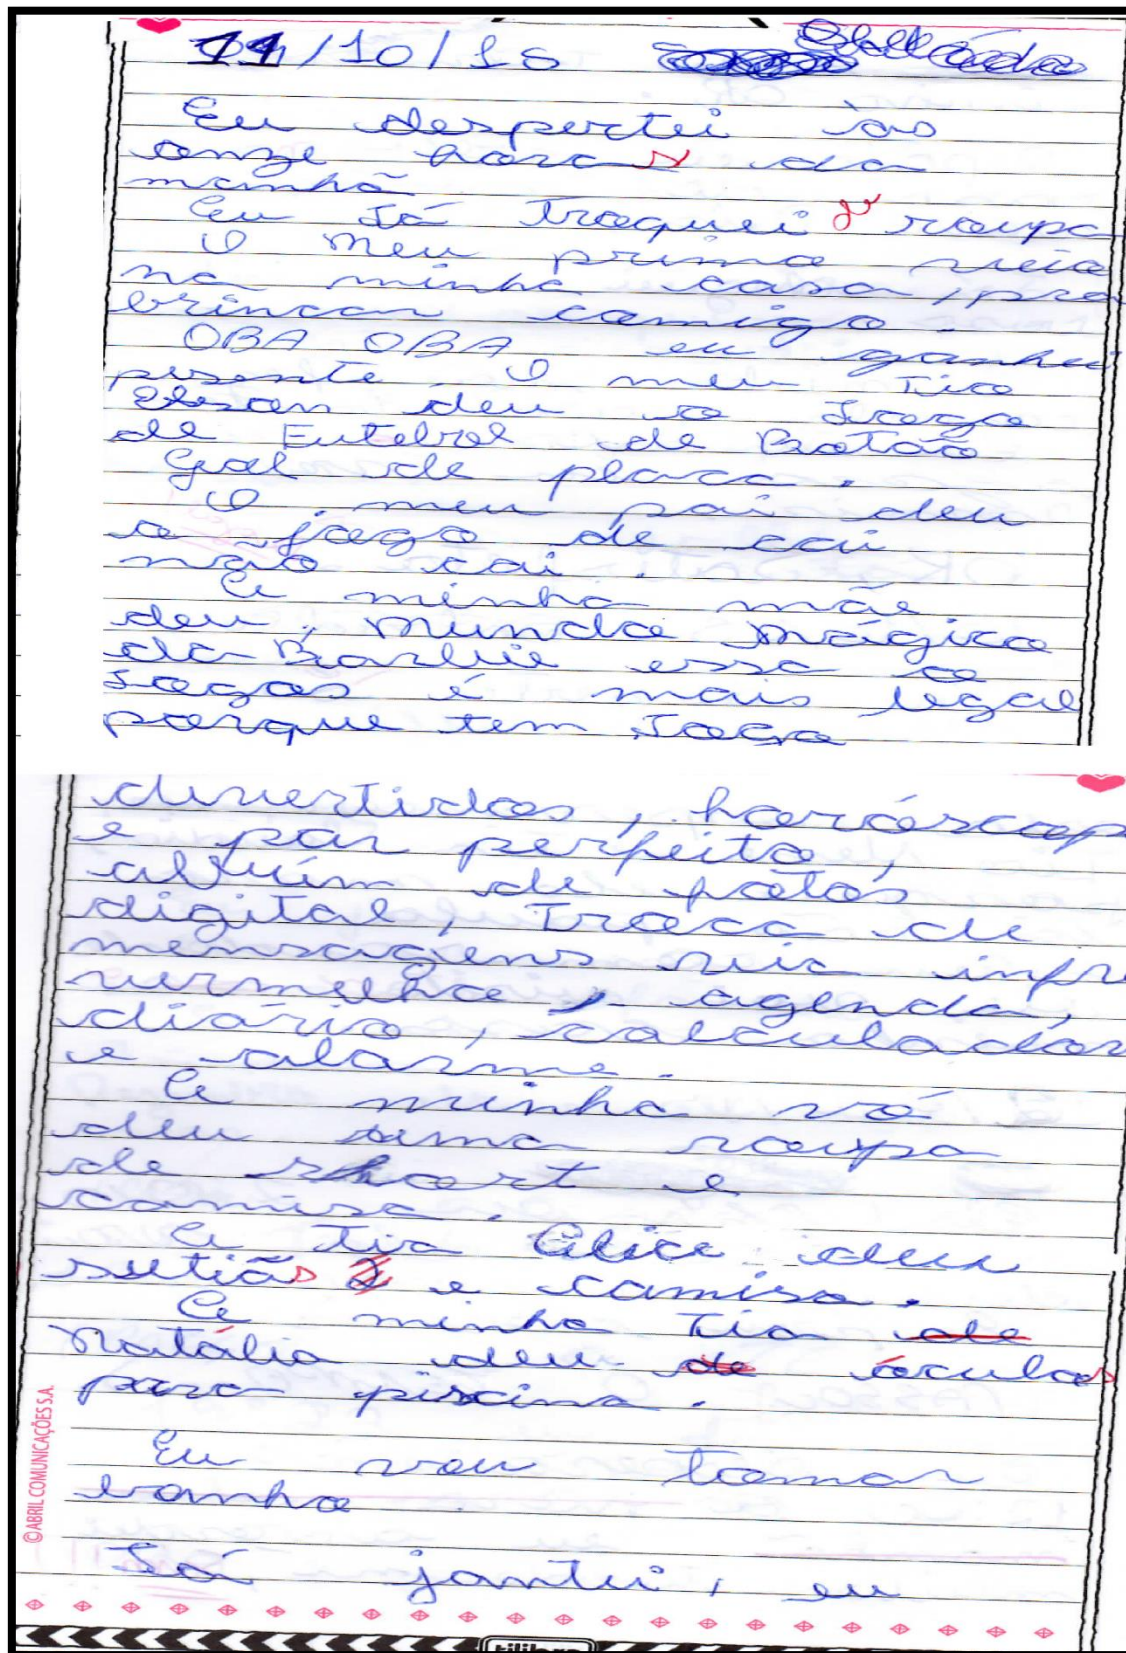 11/10/15 Sábado
Eu despertei às
onze horas da
manhã
Eu Já Troquei de roupa
O meu primo veio
na minha casa, pra
brincar comigo.
OBA OBA eu ganhei
presente. O meu Tio
deu o Jogo
de Futebol de Botão
Gol de placa.
O meu pai deu
o jogo de cai
não cai.
A minha mãe
deu, Mundo Mágico
da Barbie esse o
Jogos é mais legal
porque tem Jogo
divertidos, horóscop
e par perfeito,
albúm de fotos
digital, Troca de
mensagens via infra
vermelho, agenda,
diário, calculador
e alarme.
A minha vó
deu uma roupa
de short e
camisa.
A Tia Alice deu
sutiãs e camisa.
A minha Tia de
Natália deu de óculos
para piscina.
Eu vou tomar
banho.
Já jantei, eu
©ABRIL COMUNICAÇÕES S.A.
tilibra